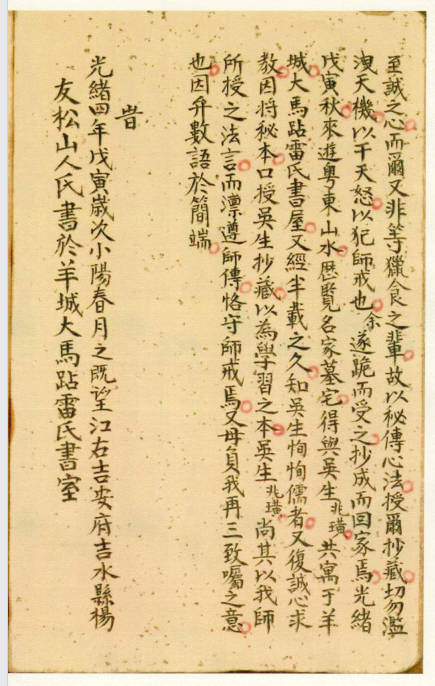 至誠之心而爾又非等獵食之輩故以秘傳心法授爾抄藏切勿濫
洩天機以干天怒以犯師戒也余遂跪而受之抄成而回家焉光緒
戊寅秋來遊粵東山水歷覽名家墓宅得與吳生兆璜共寓于羊
城大馬跕雷氏書屋又經半載之久知吳生恂恂儒者又復誠心求
教因將秘本口授吳生抄藏以為學習之本吳生兆璜尚其以我師
所授之法言而凜遵師傳恪守師戒焉又毋負我再三致囑之意
也因弁數語於簡端
旹
光緒四年戊寅歲次小陽春月之既望江右吉安府吉水縣楊
友松山人氏書於羊城大馬跕雷氏書室